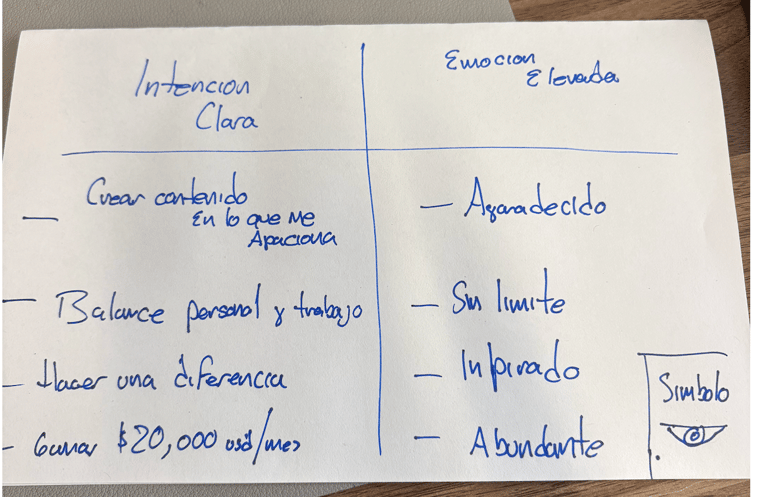 Intencion
Clara
Emocion
Elevada
— Crear contenido
En lo que Me
Apaciona
— Balance personal y trabajo
— Hacer una diferencia
- Ganar $20,000 usd/mes
— Agaradecido
— Sin limite
— Inpirado
— Abundante
Simbolo